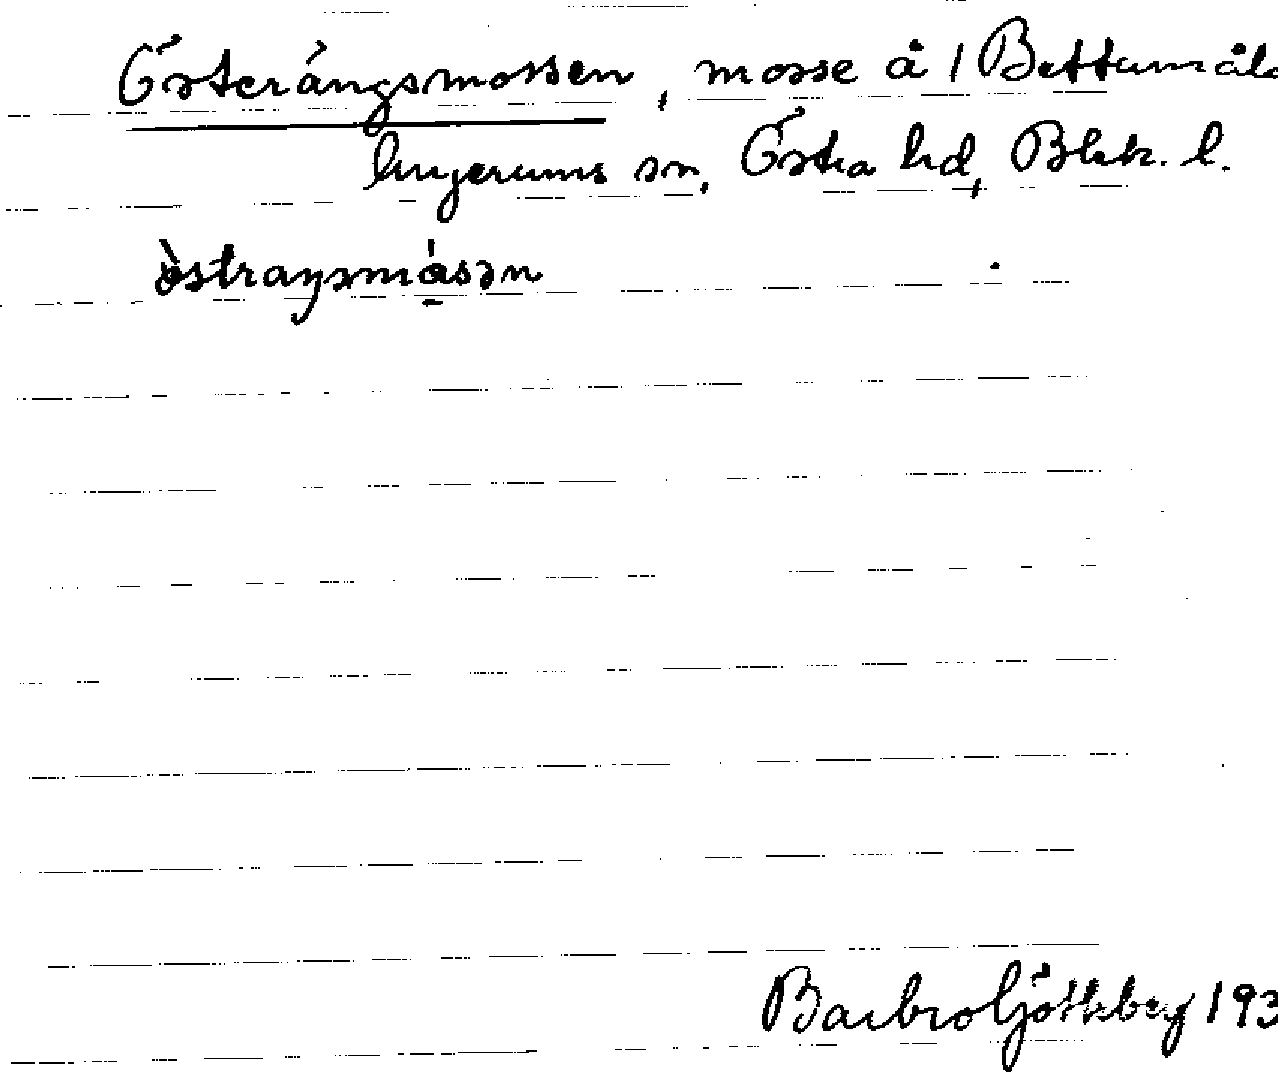 Österängsmossen, mosse å 1 Bettamåla
Jngerums sn, Östra hd, Blek. l.
östraŋsmåsən
Barbro Götheberg 193